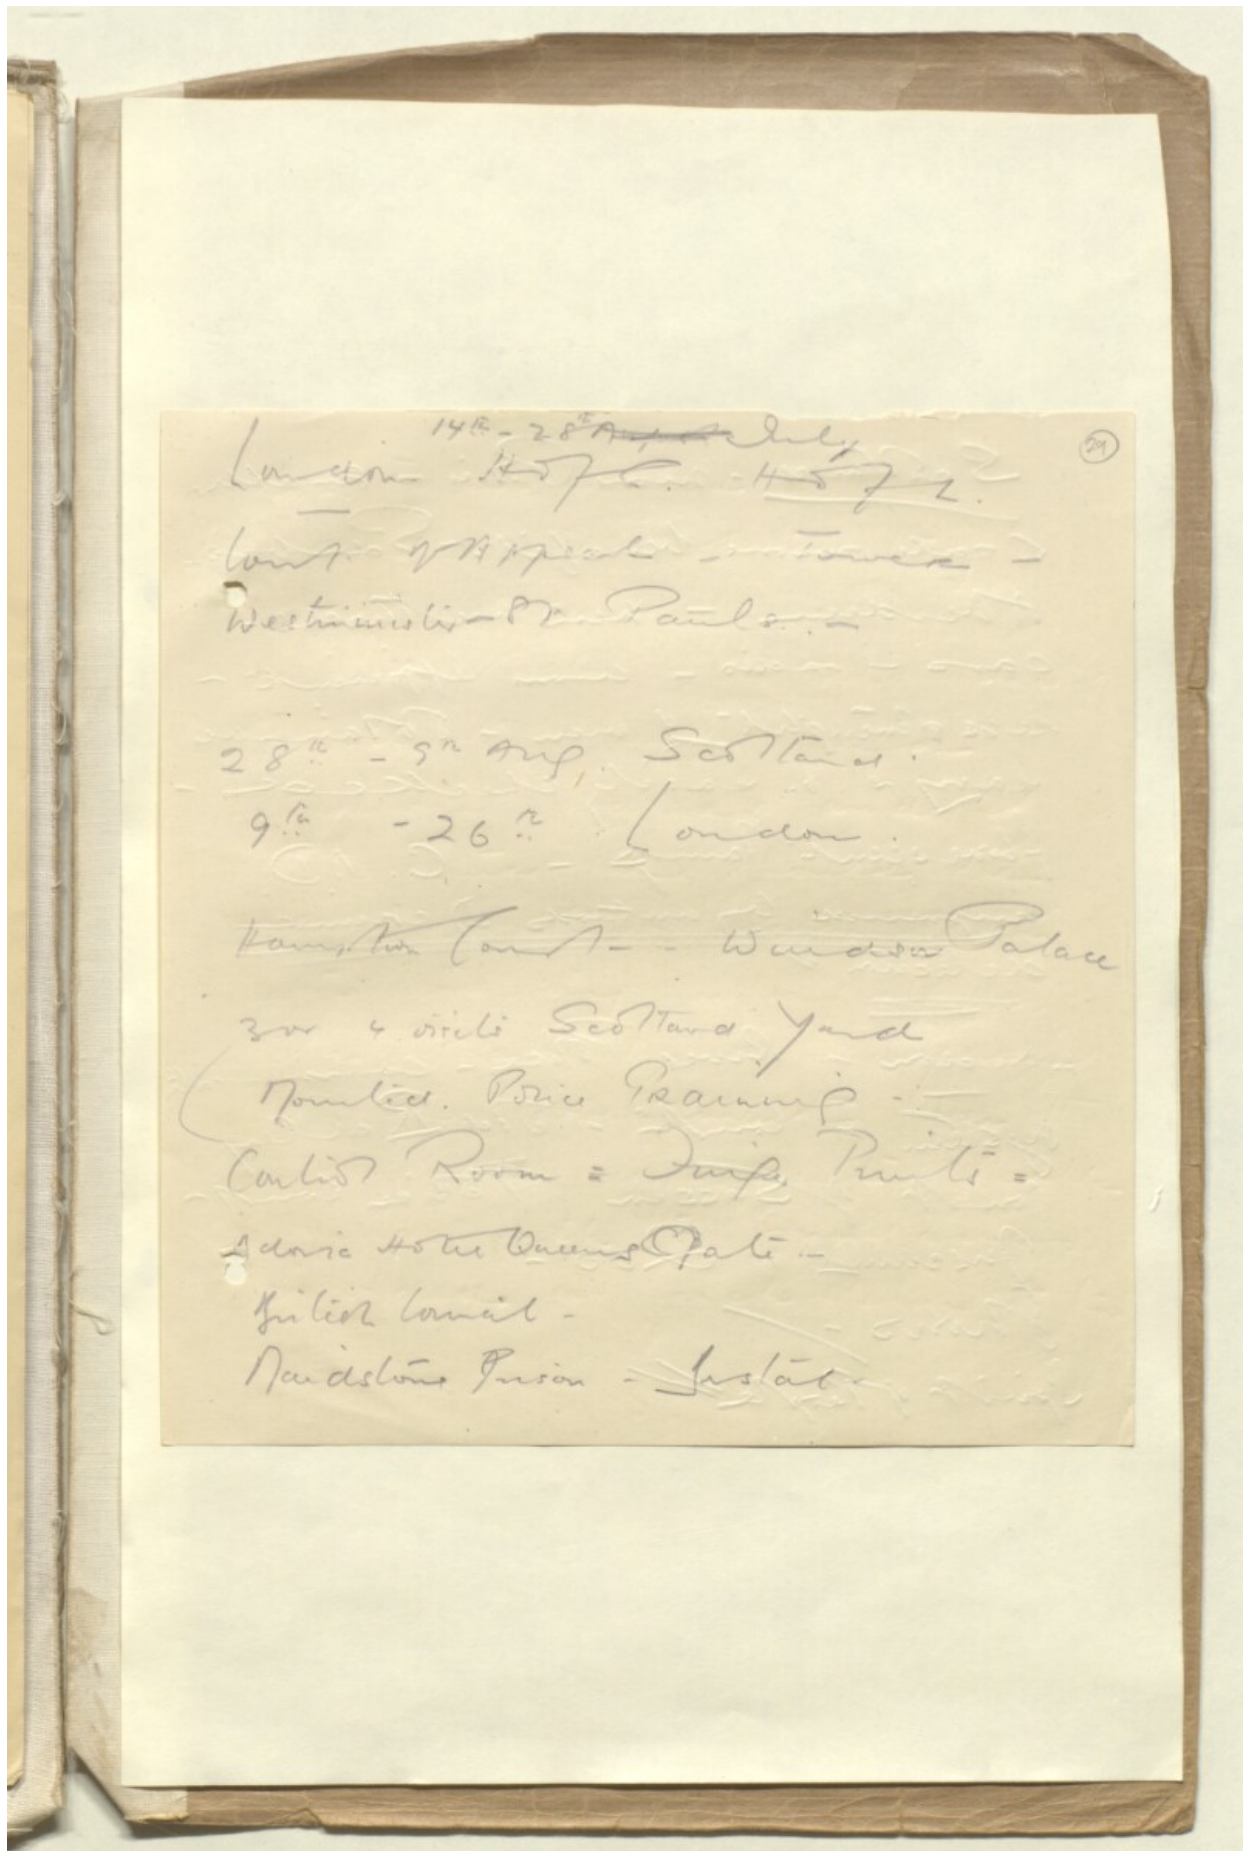 14th - 28th August July
29
London H of C. H of L.
Court of Appeal - Tower -
Westminster - St Pauls. -
28th - 9th Aug. Scotland.
9th - 26th London.
Hampton Court - - Windsor Palace
3 or 4 visits Scotland Yard
Mounted. Police Training -
Control Room = Finger Prints =
Hotel Queens Gate. -
British Council -
Maidstone Prison -